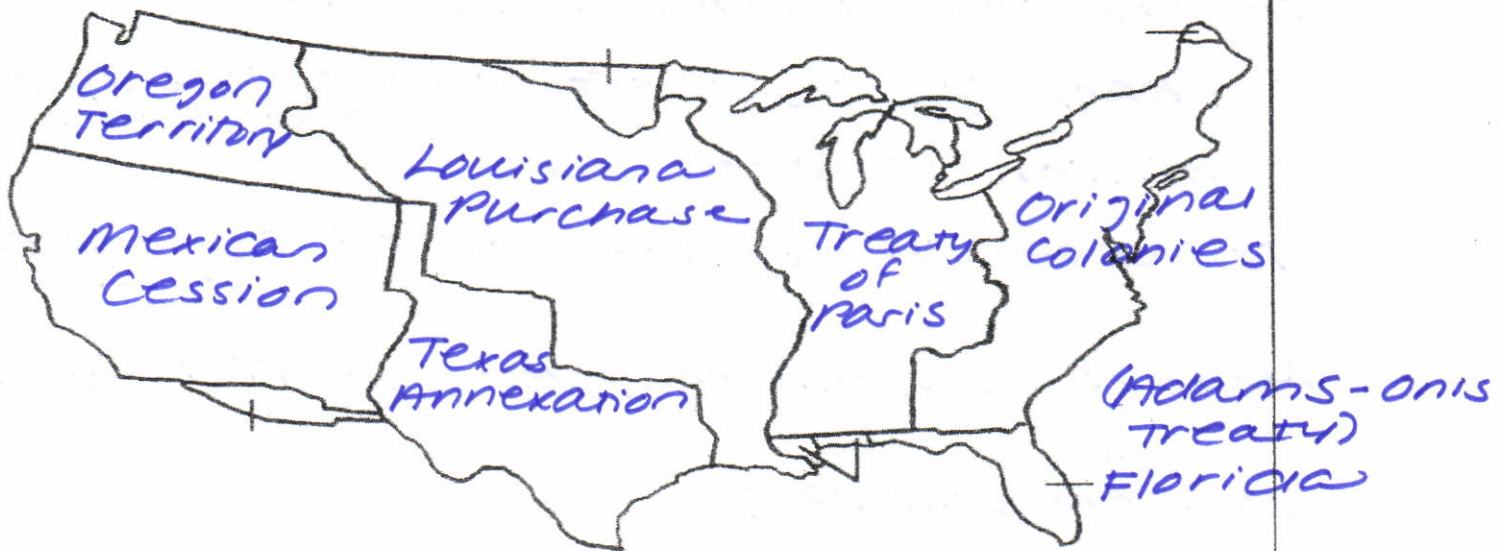 Oregon
Territory
Louisiana
Purchase
Mexican
Cession
Treaty
of
Paris
Original
Colonies
Texas
Annexation
(Adams-Onis
Treaty)
Florida